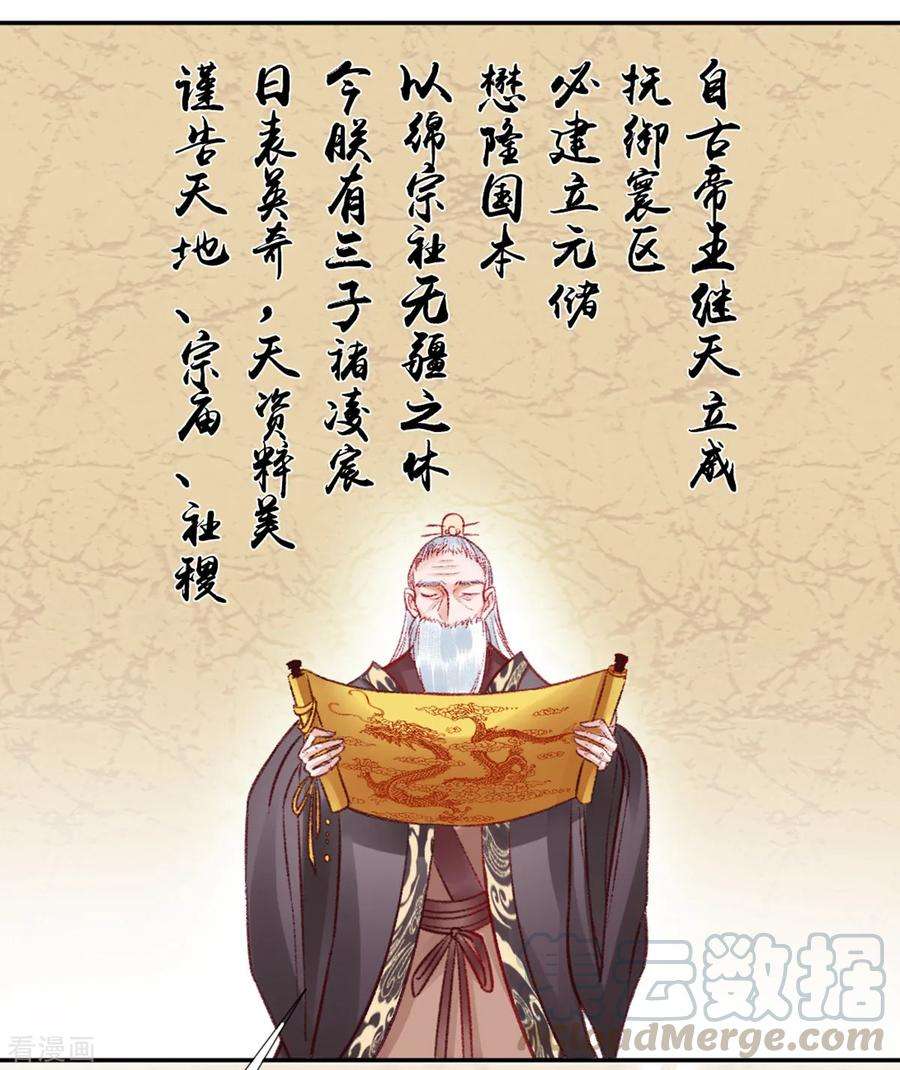 自古帝王继天立威
抚御寰区
必建立元储
懋隆国本
以绵宗社无疆之休
今朕有三子褚凌宸
日表英奇，天资粹美
谨告天地、宗庙、社稷
集云数据
JiCloudMerge.com
看漫画